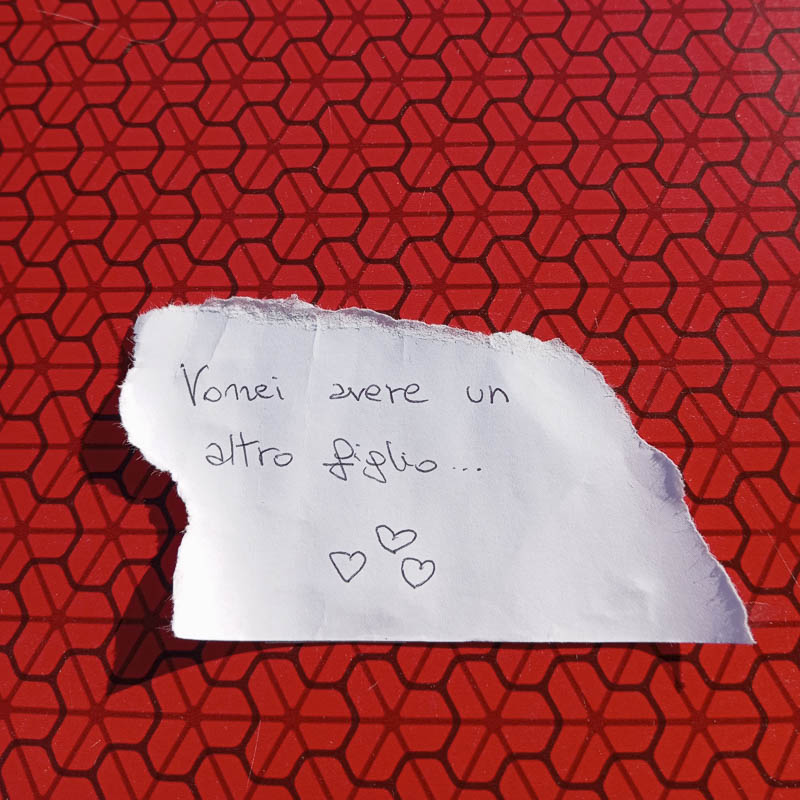 Vorrei avere un
altro figlio...